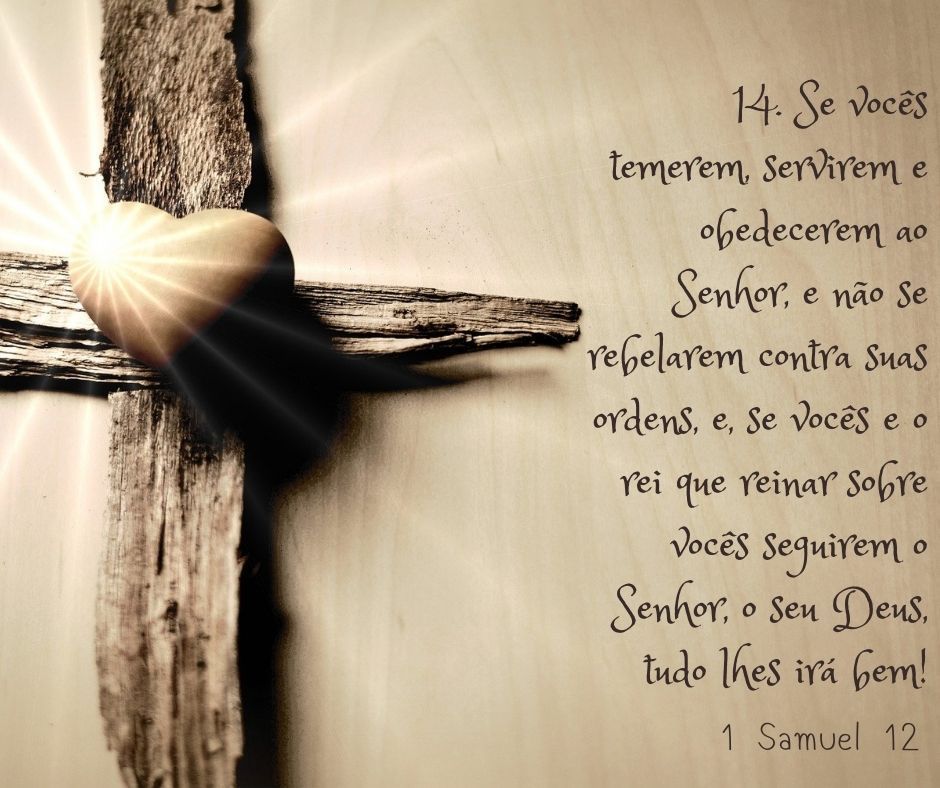 14. Se vocês
temerem, servirem e
obedecerem ao
Senhor, e não se
rebelarem contra suas
ordens, e, se vocês e o
rei que reinar sobre
vocês seguirem o
Senhor, o seu Deus,
tudo lhes irá bem!
1 Samuel 12